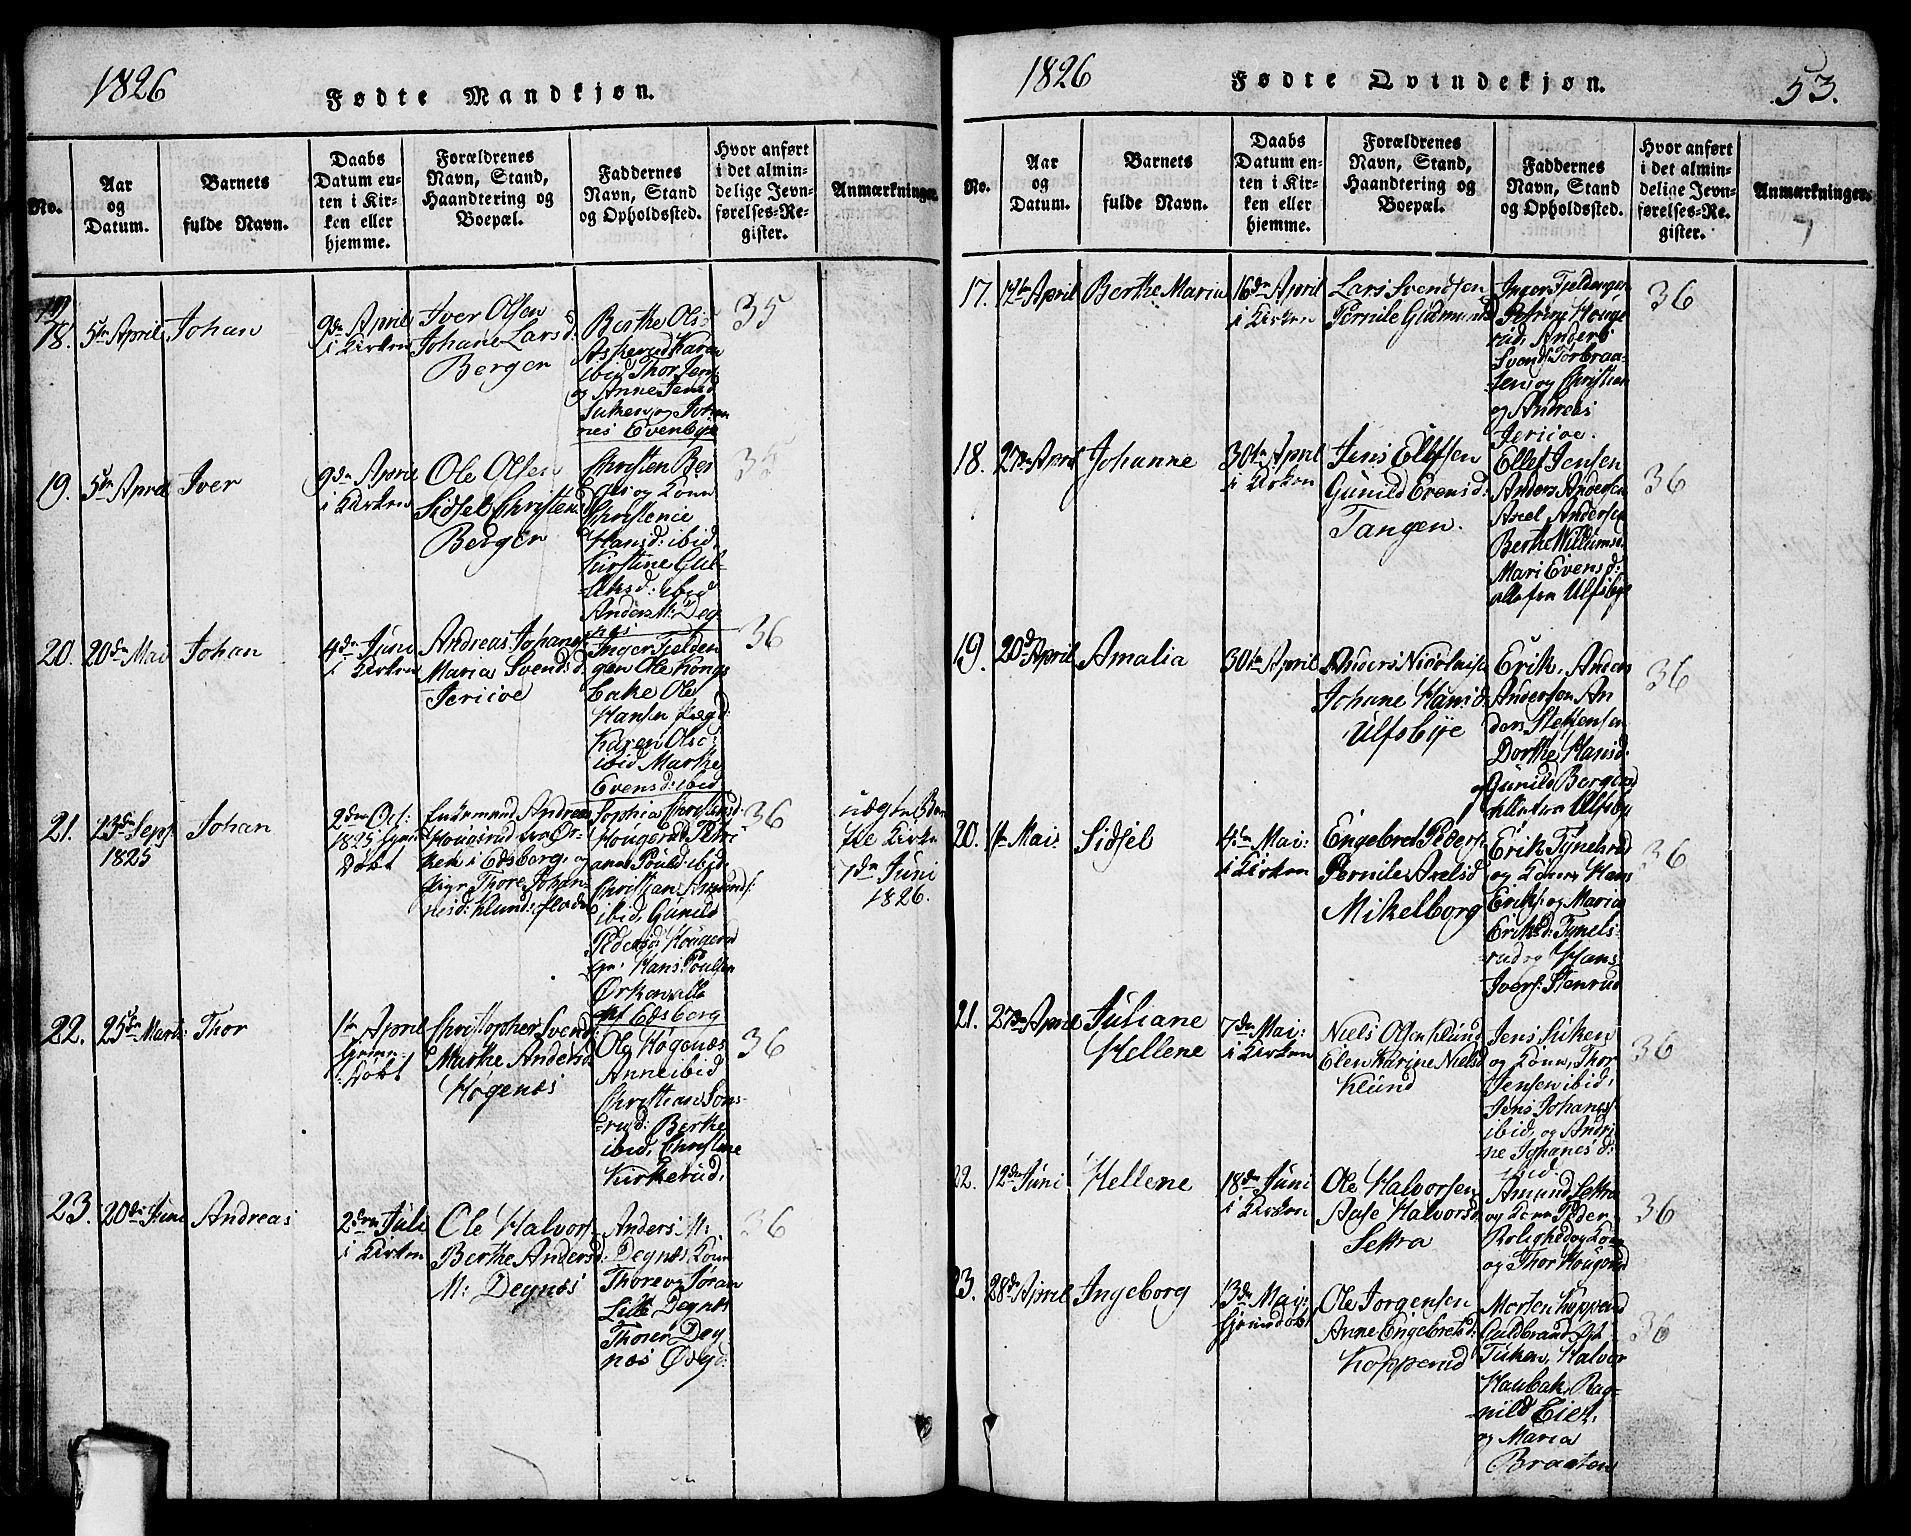 1826
Fødte Mandkjøn.
No.
Aar og Datum.
Barnets fulde Navn.
Daabs Datum enten i Kirken eller hjemme.
Forældrenes Navn, Stand, Haandtering og Boepæl.
Faddernes Navn, Stand og Opholdssted.
Hvor anført i det almindelige Jevnførelses-Register.
Anmærkninger.
18. 5te April Johan
9de April
i Kirken
Iver Olsen
Johane Larsd:
Berger
Berthe Ols:
Askerud Karen
ibid Thor Jens:
og Anne Jensd
Johannes Evenbye
35
19. 5te April Iver
9de April
i Kirken
Ole Olsen
Sidsel Christend:
Berger
Christen Berger og Kone
Christenie
Hansd: ibid,
Kirstine Gulliksd: ibid
Anders M: Degnes
35
20. 20de Mai Johan
4de Juni
i Kirken
Andreas Johanes
Maria Svendsd:
Jericoe
Inger Fjelden
gen Ole Kongs
bake Ole
Hansen
Karen Ols:
ibid Marthe
Evensd: ibid
36
21. 23de Sept: 1825 Johan
2den Oct:
1825 Hjem
Døbt
Enkemand Andreas
Hougerud
ken i Edsberg, og
Pige Thore Johan
nesd: Klund:
Sophia Christensd:
Hougerud Petri
ane Pouls: ibid,
Christian Amunds:
ibid, Gunild
Pedersd Hougerud
Hans Poulsen
Ørken alle
af Edsberg
36
uægte Barn
Kirken
7de Juni
1826.
22. 25de Marts: Thor
1te April
Hjemme
Døbt
Christopher Svends:
Marthe Andersd
Høgenes
Ole Høgenæs
Anne ibid
Christian Sons
rud: Berthe
ibid, Christine
Kirkerud,
36
23. 20de Juni Andreas
2den Juli
i Kirken
Ole Halvors:
Berthe Andersd:
M: Degnæs
Anders M:
Degnæs, Kone
Thore og Søren
Lille Degnæs
Thoren Deg
næs Øvgd:
36
1826
Fødte Qvindekjøn.
53.
No.
Aar og Datum.
Barnets fulde Navn.
Daabs Datum enten i Kirken eller hjemme.
Forældrenes Navn, Stand, Haandtering og Boepæl.
Faddernes Navn, Stand og Opholdssted.
Hvor anført i det almindelige Jevnførelses-Register.
Anmærkninger.
17. 12te April Berthe Maria
16de April
i Kirken
Lars Svendsen
Pernile Gudmunds
Inger Fjeldengen
Houge
rud, Anders
Svends Torbraa
ten, og Christian
og Andreas
Jericoe.
36
18. 27de April Johanne
30te April
i Kirken
Jens Ellefsen
Gunild Evensd:
Tangen.
Ellef Jensen
Anders Andersen
Axel Andersen
Berthe Willumsd:
Mari Evensd:
alle fra Ulfsbye
36
19. 20de April Amalia
30te April
Anders Nicolaisen
Johane Hansd
Ulfsbye
Erik, Anders
Andersen An
ders Steffensen
Dorthe Hansd:
og Gunild Bergersd
alle fra Ulfsby
36
20. 1te Mai: Sidsel
4de Mai:
i Kirken
Engebret Peders:
Pernile Axelsd
Mikelborg
Erik Tynelsrud
og Kone, Hans
Eriks: og Maria
Eriksd: Tynels
rud og Hans
Ivers: Stenrud
36
21. 27de April Juliane
Hellene
7de Mai:
i Kirken
Niels Olsen Klund
Elen Karine Nielsd
Klund
Jens Suken
og Kone, Thor
Jensen ibid,
Jens Johanes:
ibid, og Andri
ne Johanesd:
ibid
36
22. 12de Juni Hellene
18de Juni
i Kirken
Ole Halvorsen
Aase Halvorsd:
Setra
Amund Setra
og Kone Peder
Rolighed og Kone
og Thor Hougerud
36
23. 28de April Ingeborg
13de Mai:
Hjemdøbt
Ole Jorgensen
Anne Engebretsd:
Kopperud
Morten Kopperud
Guldbrand
Halvor
Haubak, Rag
nild Eier,
og Maria
Braaten
36